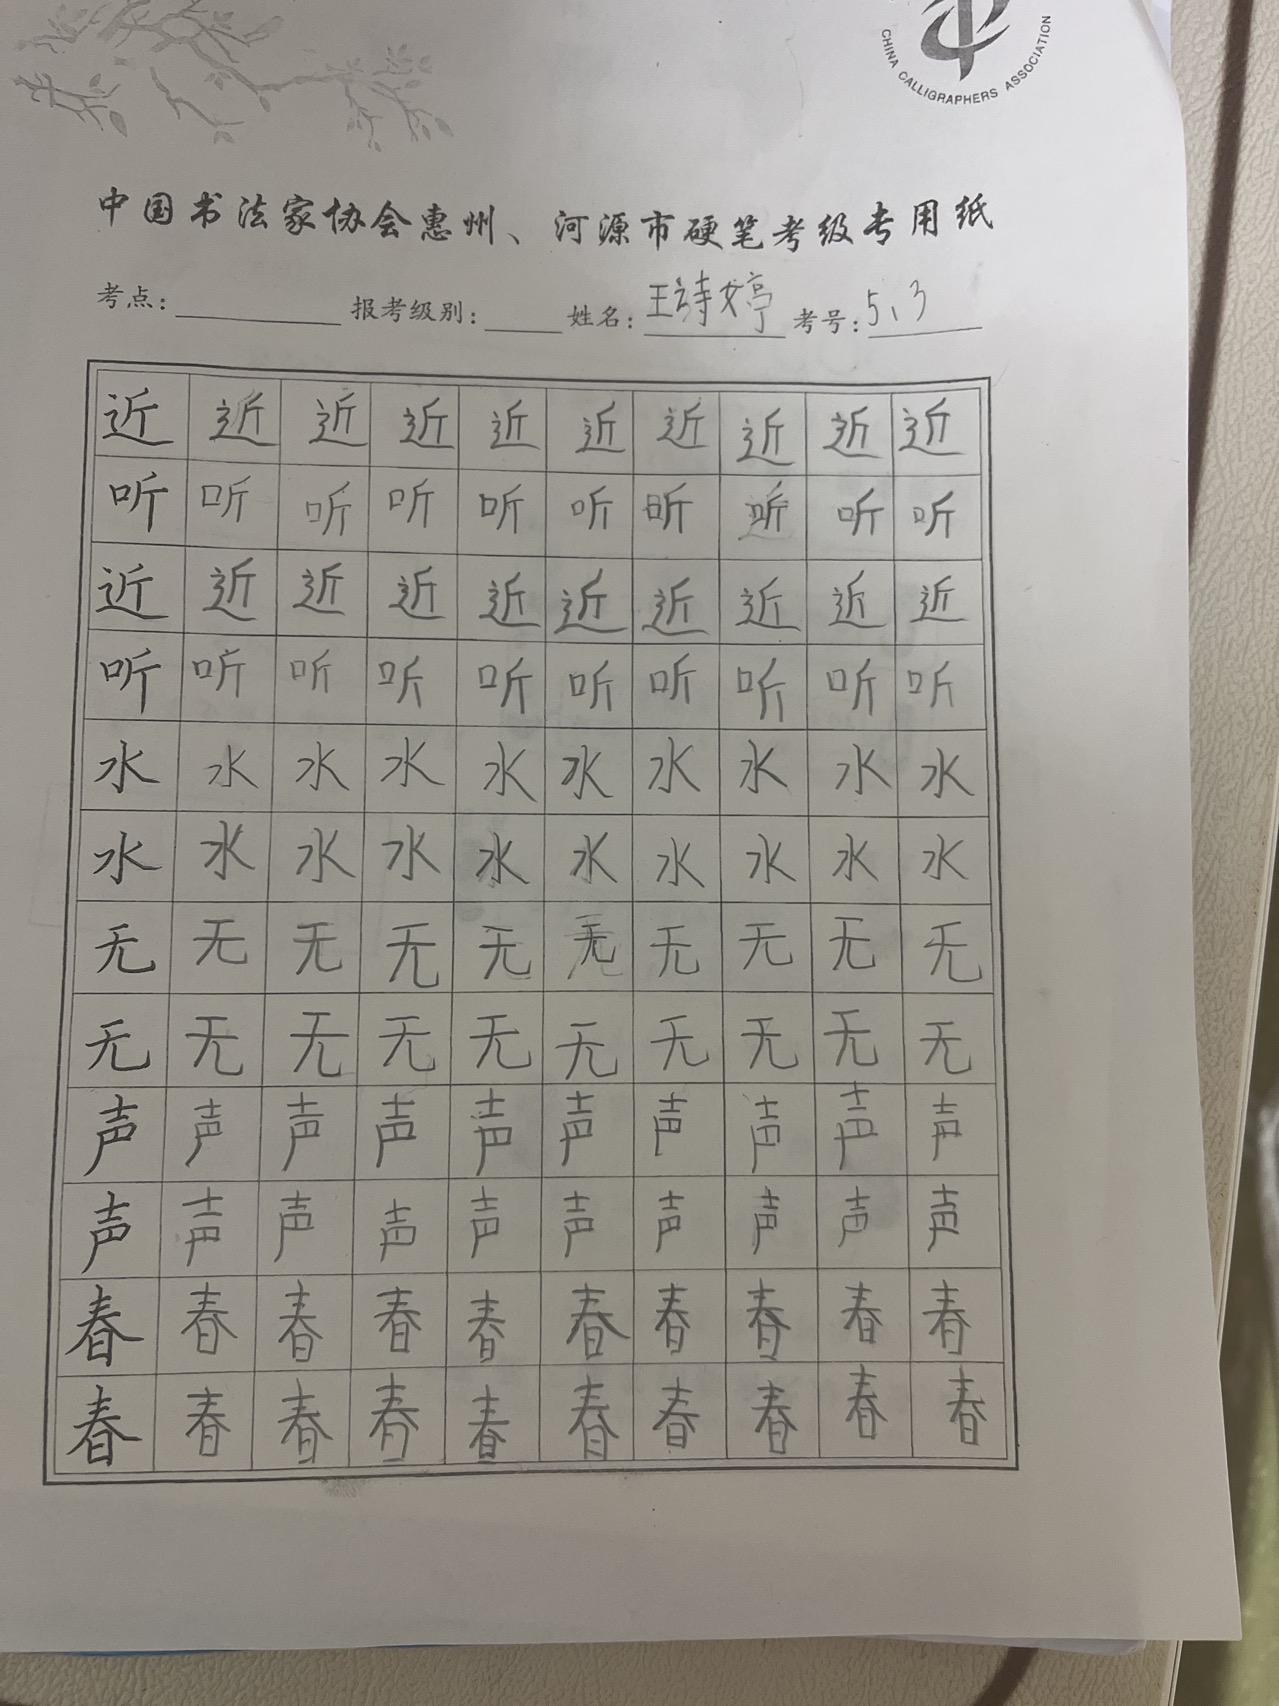 CHINA CALLIGRAPHERS ASSOCIATION
中国书法家协会惠州、河源市硬笔考级专用纸
考点: 报考级别: 姓名: 王诗婷 考号: 5、3
近 近 近 近 近 近 近 近 近 近
听 听 听 听 听 听 听 听 听 听
近 近 近 近 近 近 近 近 近 近
听 听 听 听 听 听 听 听 听 听
水 水 水 水 水 水 水 水 水 水
水 水 水 水 水 水 水 水 水 水
无 无 无 无 无 无 无 无 无 无
无 无 无 无 无 无 无 无 无 无
声 声 声 声 声 声 声 声 声 声
声 声 声 声 声 声 声 声 声 声
春 春 春 春 春 春 春 春 春 春
春 春 春 春 春 春 春 春 春 春